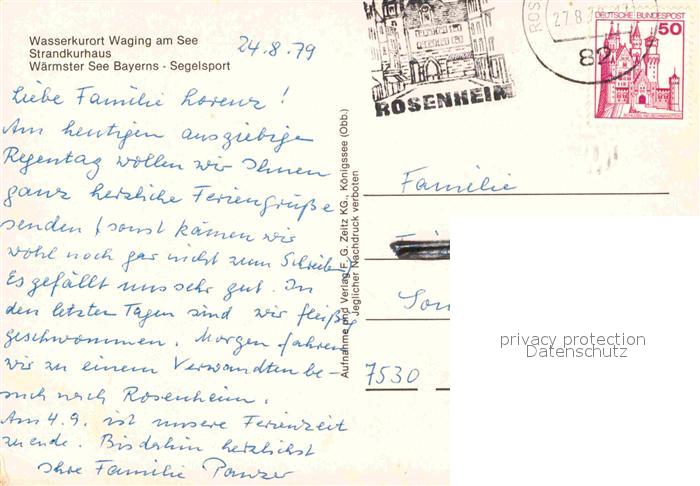 Wasserkurort Waging am See
Strandkurhaus
Wärmster See Bayerns - Segelsport
24.8.79
Liebe Familie Lorenz!
Am heutigen ausgiebigen
Regentag wollen wir Ihnen
ganz herzliche Feriengrüße
senden (sonst kämen wir
wohl noch gar nicht zum Schreiben).
Es gefällt uns sehr gut. In
den letzten Tagen sind wir fleißig
geschwommen. Morgen fahren
wir zu einem Verwandtenbe-
such nach Rosenheim.
Am 4.9. ist unsere Ferienzeit
zuende. Bis dahin herzlichst
Ihre Familie Panzer
Aufnahme und Verlag F. G. Zeitz KG., Königssee (Obb.)
Jeglicher Nachdruck verboten
ROSENHEIM
ROS
27.8.
82
DEUTSCHE BUNDESPOST
50
Familie
7530
privacy protection
Datenschutz